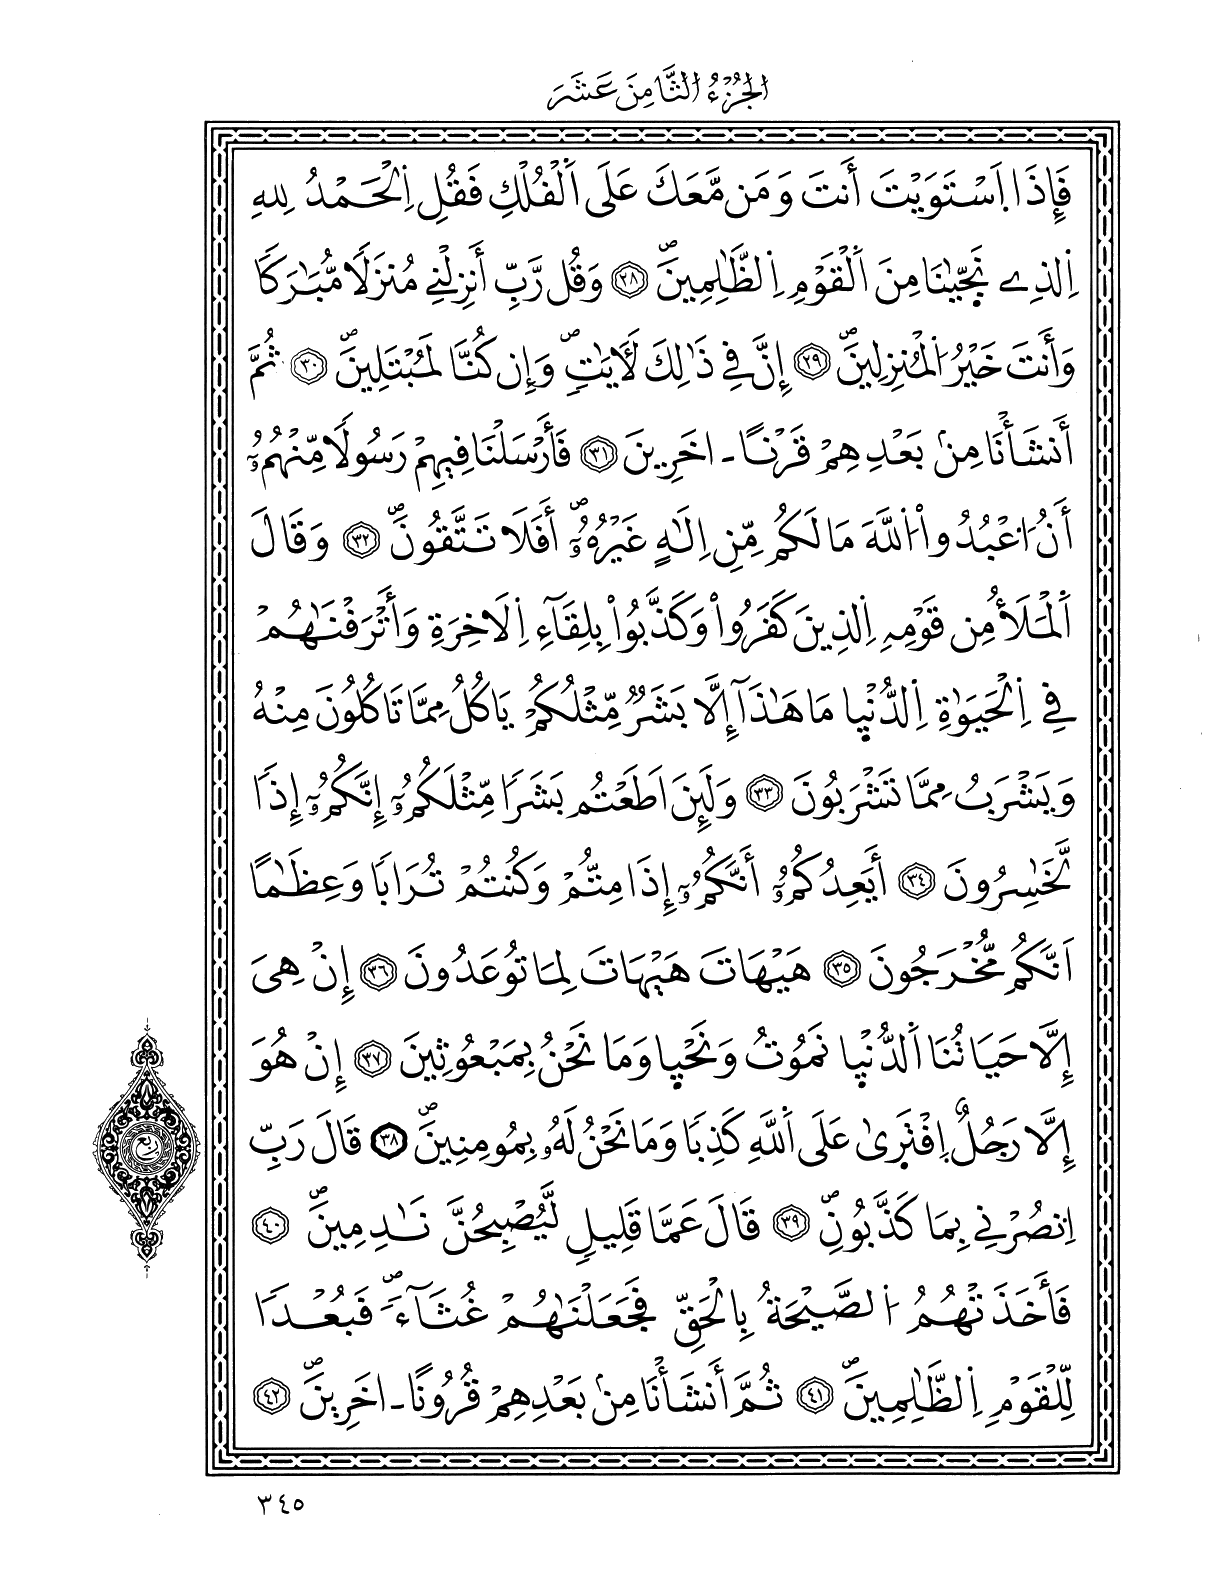 الجُزْءُ الثَّامِنَ عَشَرَ
فَإِذَا اَ۪سْتَوَيْتَ أَنتَ وَمَن مَّعَكَ عَلَى اَ۬لْفُلْكِ فَقُلِ اِ۬لْحَمْدُ لِلهِ
اِ۬لذِے نَجّ۪يٰنَا مِنَ اَ۬لْقَوْمِ اِ۬لظَّٰلِمِينَۖ ٢٨ وَقُل رَّبِّ أَنزِلْنِے مُنزَلاٗ مُّبَٰرَكاٗ
وَأَنتَ خَيْرُ اُ۬لْمُنزِلِينَۖ ٢٩ إِنَّ فِے ذَٰلِكَ لَأٓيَٰتٖۖ وَإِن كُنَّا لَمُبْتَلِينَۖ ٣٠ ثُمَّ
أَنشَأْنَا مِنۢ بَعْدِهِمْ قَرْناً ـ اخَرِينَ ٣١ فَأَرْسَلْنَا فِيهِمْ رَسُولاٗ مِّنْهُمُۥٓ
أَنُ اُ۟عْبُدُواْ اُ۬للَّهَ مَا لَكُم مِّنِ اِلَٰهٍ غَيْرُهُۥٓۖ أَفَلَا تَتَّقُونَۖ ٣٢ وَقَالَ
اَ۬لْمَلَأُ مِن قَوْمِهِ اِ۬لذِينَ كَفَرُواْ وَكَذَّبُواْ بِلِقَآءِ اِ۬لَاخِرَةِ وَأَتْرَفْنَٰهُمْ
فِے اِ۬لْحَيَوٰةِ اِ۬لدُّنْي۪ا مَا هَٰذَآ إِلَّا بَشَرٞ مِّثْلُكُمْ يَاكُلُ مِمَّا تَاكُلُونَ مِنْهُ
وَيَشْرَبُ مِمَّا تَشْرَبُونَ ٣٣ وَلَئِنَ اَطَعْتُم بَشَراٗ مِّثْلَكُمُۥٓ إِنَّكُمُۥٓ إِذاٗ
لَّخَٰسِرُونَ ٣٤ أَيَعِدُكُمُۥٓ أَنَّكُمُۥٓ إِذَا مِتُّمْ وَكُنتُمْ تُرَاباٗ وَعِظَٰماً
اَنَّكُم مُّخْرَجُونَ ٣٥ هَيْهَاتَ هَيْهَاتَ لِمَا تُوعَدُونَ ٣٦ إِنْ هِيَ
إِلَّا حَيَاتُنَا اَ۬لدُّنْي۪ا نَمُوتُ وَنَحْي۪ا وَمَا نَحْنُ بِمَبْعُوثِينَ ٣٧ إِنْ هُوَ
إِلَّا رَجُلٌ اِ۪فْتَر۪يٰ عَلَى اَ۬للَّهِ كَذِباٗ وَمَا نَحْنُ لَهُۥ بِمُومِنِينَۖ ٣٨ قَالَ رَبِّ
اِ۟نصُرْنِے بِمَا كَذَّبُونِۖ ٣٩ قَالَ عَمَّا قَلِيلٖ لَّيُصْبِحُنَّ نَٰدِمِينَۖ ٤٠
فَأَخَذَتْهُمُ اُ۬لصَّيْحَةُ بِالْحَقِّ فَجَعَلْنَٰهُمْ غُثَآءٗۖ فَبُعْداٗ
لِّلْقَوْمِ اِ۬لظَّٰلِمِينَۖ ٤١ ثُمَّ أَنشَأْنَا مِنۢ بَعْدِهِمْ قُرُوناً ـ اخَرِينَۖ ٤٢
ربع
٣٤٥